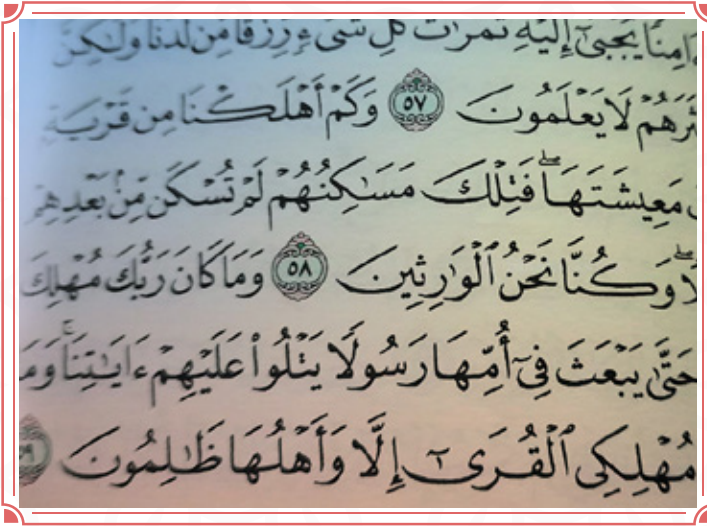 ءَامِنًا يُجْبَىٰٓ إِلَيْهِ ثَمَرَٰتُ كُلِّ شَىْءٍ رِّزْقًا مِّن لَّدُنَّا وَلَٰكِنَّ
لَا يَعْلَمُونَ ٥٧ وَكَمْ أَهْلَكْنَا مِن قَرْيَةٍ
مَعِيشَتَهَا ۖ فَتِلْكَ مَسَٰكِنُهُمْ لَمْ تُسْكَن مِّنۢ بَعْدِهِمْ
وَكُنَّا نَحْنُ ٱلْوَٰرِثِينَ ٥٨ وَمَا كَانَ رَبُّكَ مُهْلِكَ
حَتَّىٰ يَبْعَثَ فِىٓ أُمِّهَا رَسُولًا يَتْلُوا۟ عَلَيْهِمْ ءَايَٰتِنَا ۚ وَمَا
مُهْلِكِى ٱلْقُرَىٰٓ إِلَّا وَأَهْلُهَا ظَٰلِمُونَ ٥٩